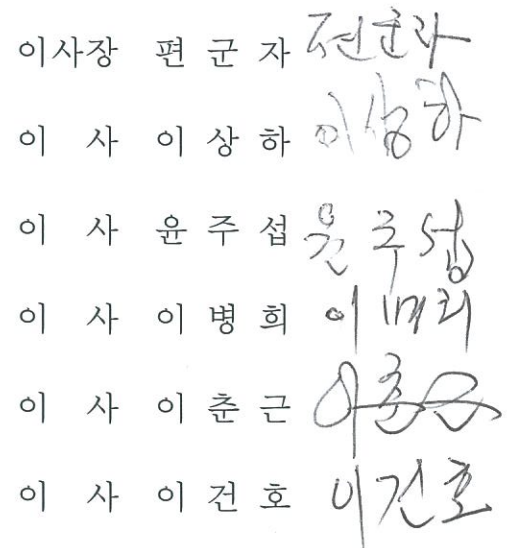 이사장 편 군 자 편군자
이 사 이 상 하 이상하
이 사 윤 주 섭 윤주섭
이 사 이 병 희 이병희
이 사 이 춘 근 이춘근
이 사 이 건 호 이건호